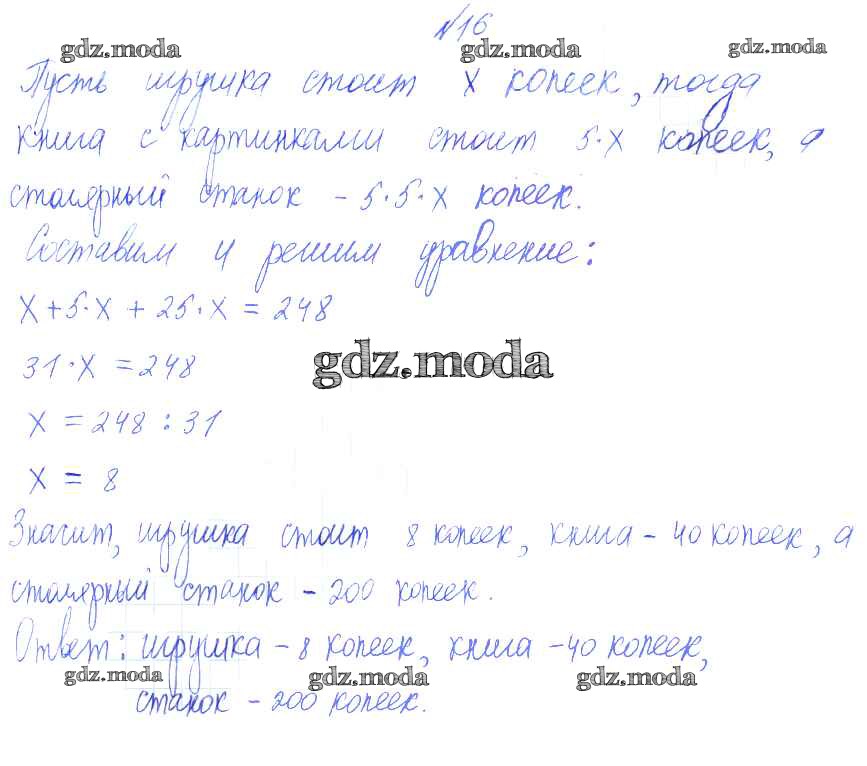 №16
gdz.moda gdz.moda gdz.moda
Пусть игрушка стоит x копеек, тогда
книга с картинками стоит 5·x копеек, а
столярный станок - 5·5·x копеек.
Составим и решим уравнение:
x+5·x + 25·x = 248
31·x = 248
gdz.moda
x = 248 : 31
x = 8
Значит, игрушка стоит 8 копеек, книга - 40 копеек, а
столярный станок - 200 копеек.
Ответ: игрушка - 8 копеек, книга - 40 копеек,
gdz.moda gdz.moda gdz.moda
станок - 200 копеек.